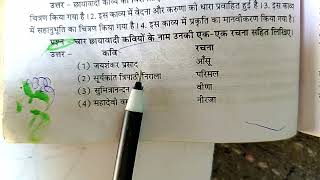 उत्तर – छायावादी काव्य की
किया गया है। 2. इस काव्य में वेदना और करुणा को धारा प्रवाहित हुई है । 3. इस काव्य
में सहानुभूति का चित्रण किया गया है। 4. इस काव्य में प्रकृति का मानवीकरण किया गया है।
चार छायावादी कवियों के नाम उनकी एक-एक रचना सहित लिखिए।
उत्तर – कवि रचना
(1) जयशंकर प्रसाद आँसू
(2) सूर्यकांत त्रिपाठी निराला परिमल
(3) सुमित्रानन्दन वीणा
(4) महादेवी नीरजा